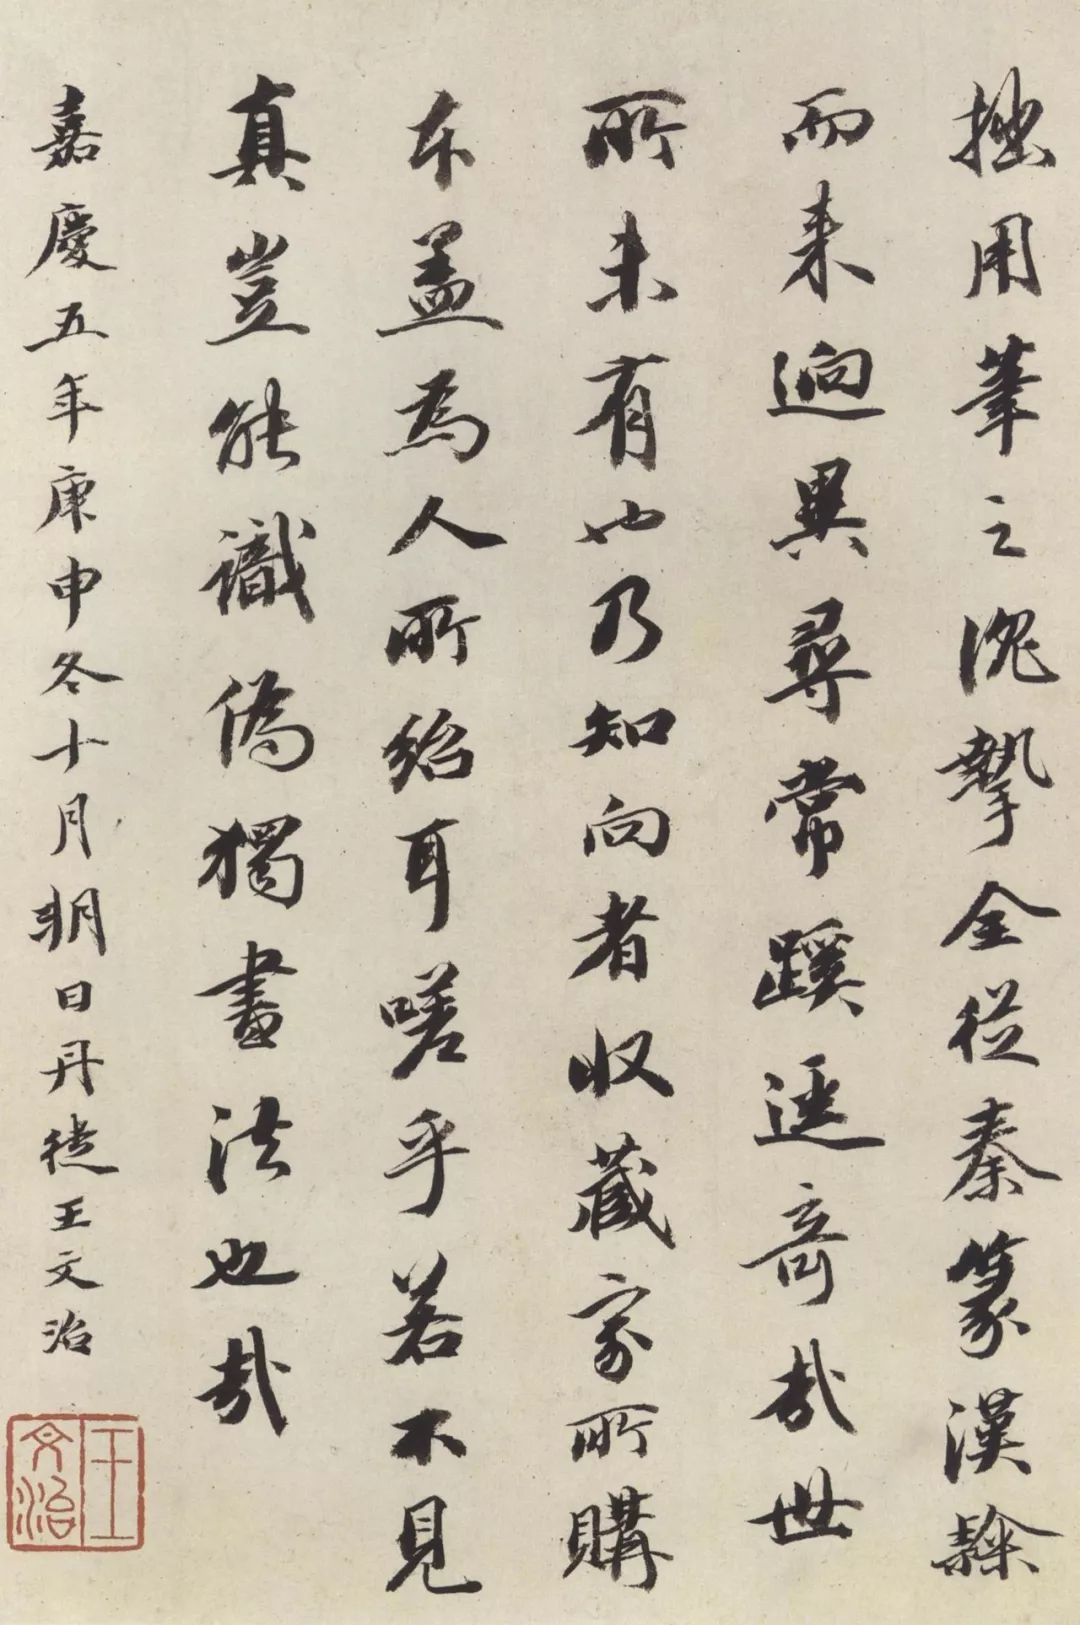 拙用筆之沈摯全從秦篆漢隸
而来逈異尋常蹊逕奇哉世
所未有也乃知向者收藏家所購
本盖為人所紿耳嗟乎若不見
真豈能識偽獨書法也哉
嘉慶五年庚申冬十月朔日丹徒王文治
王文治